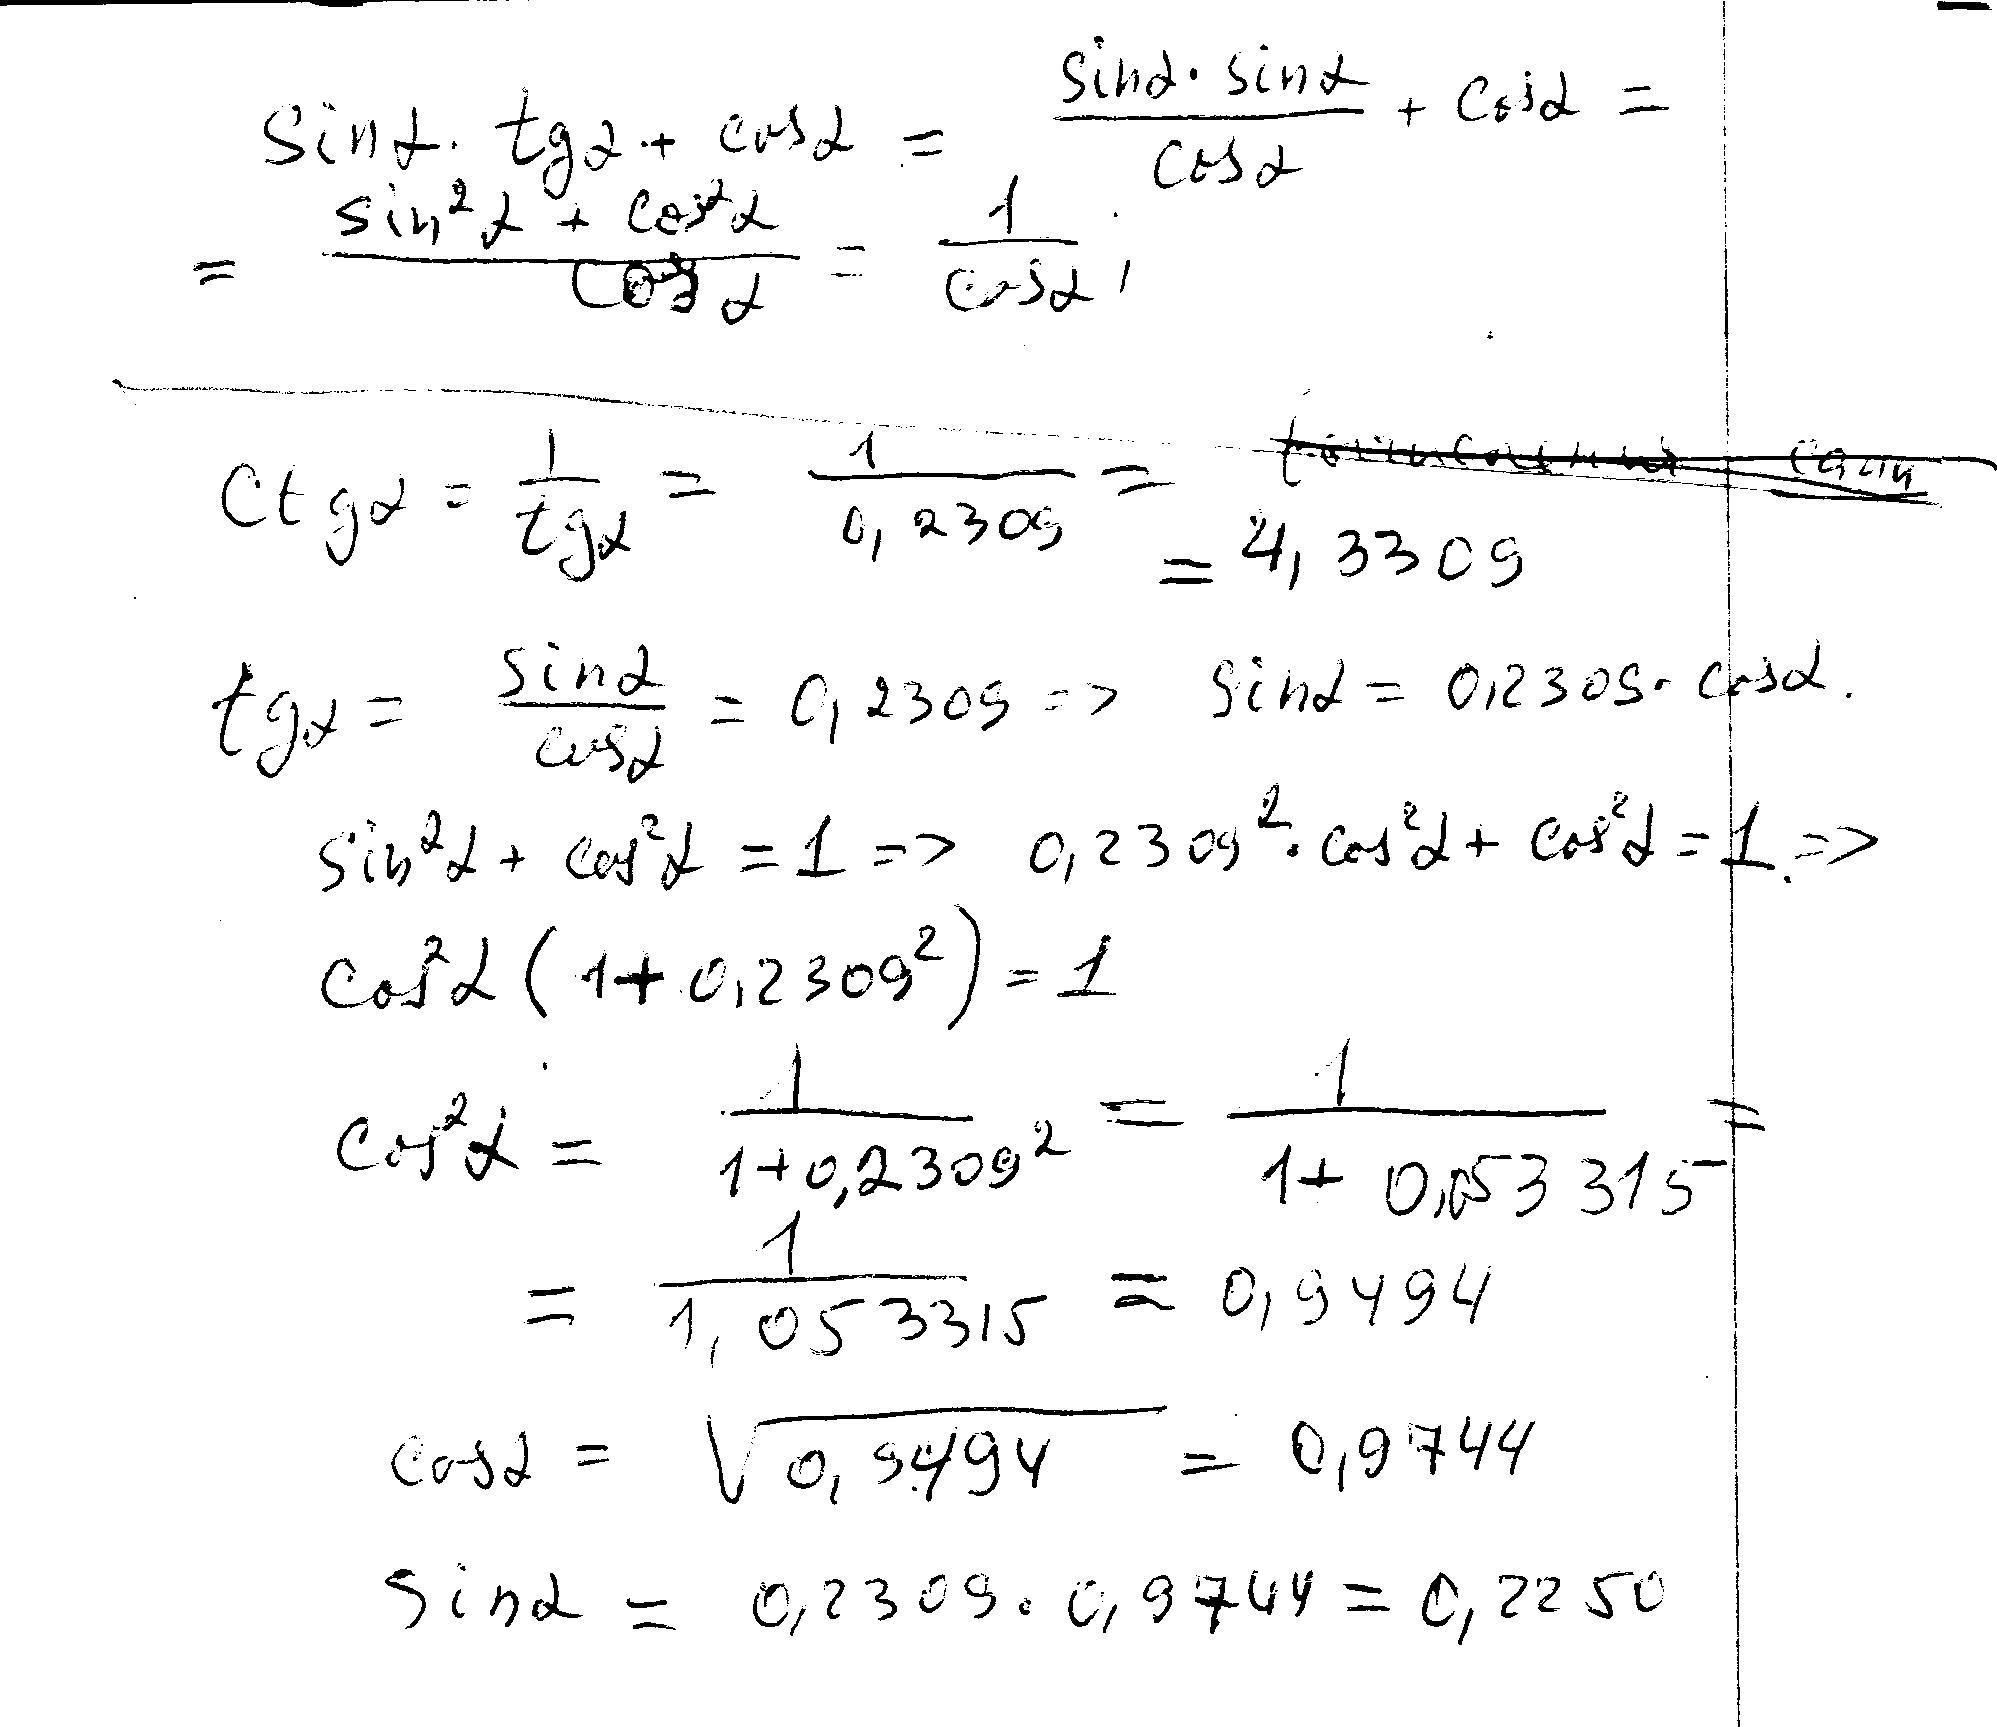 sinα · tgα + cosα = (sinα · sinα)/cosα + cosα =
= (sin²α + cos²α)/cosα = 1/cosα,
ctgα = 1/tgα = 1/0,2309 =
= 4,3309
tgα = sinα/cosα = 0,2309 => sinα = 0,2309 · cosα.
sin²α + cos²α = 1 => 0,2309² · cos²α + cos²α = 1 =>
cos²α (1 + 0,2309²) = 1
cos²α = 1/(1+0,2309²) = 1/(1+0,053315) =
= 1/1,053315 = 0,9494
cosα = √0,9494 = 0,9744
sinα = 0,2309 · 0,9744 = 0,2250